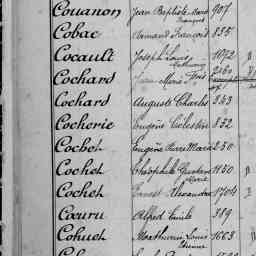 Couanon Jean Baptiste Marie 907
François
Cobac Armand François 835
Cocault Joseph Louis 1072
Cochard Jean Marie Frs 2160
Cochard Auguste Charles 343
Cocherie Eugène Célestin 832
Cochet Eugène Pierre Marie 250
Cochet Théophile Gustave 1150
Marie
Cochet Ernest Alexandre 1704
Cocuru Alfred Emile 389
Cohuet Mathurin Louis 1663
Etienne